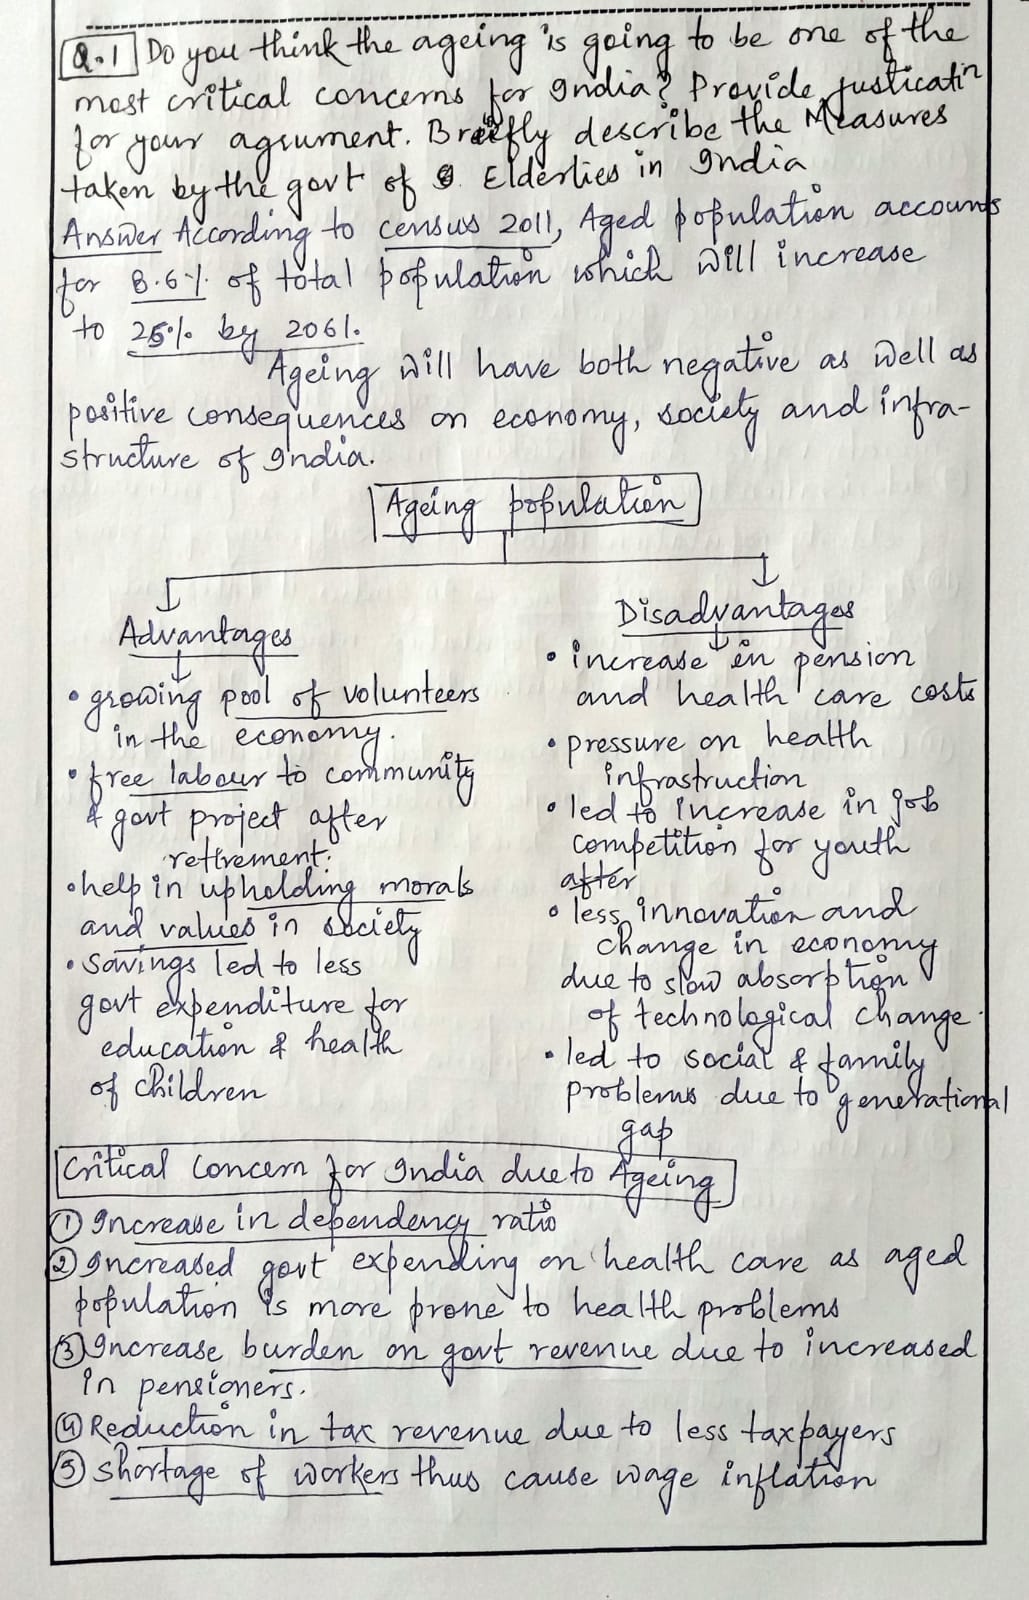 Q.1 Do you think the ageing is going to be one of the
most critical concerns for India? Provide justicatin
for your agrument. Breifly describe the Measures
taken by the govt of Elderlies in India
Answer According to census 2011, Aged population accounts
for 8.6% of total population which will increase
to 25% by 2061.
Ageing will have both negative as well as
positive consequences on economy, society and infra-
structure of India.
Ageing population
Advantages
• growing pool of volunteers
in the economy.
• free labour to community
& govt project after
retirement.
• help in upholding morals
and values in society
• savings led to less
govt expenditure for
education & health
of children
Disadvantages
• increase in pension
and health care costs
• pressure on health
infrastruction
• led to increase in job
competition for youth
after
• less innovation and
change in economy
due to slow absorption
of technological change.
• led to social & family
problems due to generational
gap
Critical Concern for India due to Ageing
① Increase in dependency ratio
② Increased govt expending on health care as aged
population is more prone to health problems
③ Increase burden on govt revenue due to increased
in pensioners.
④ Reduction in tax revenue due to less taxpayers
⑤ Shortage of workers thus cause wage inflation